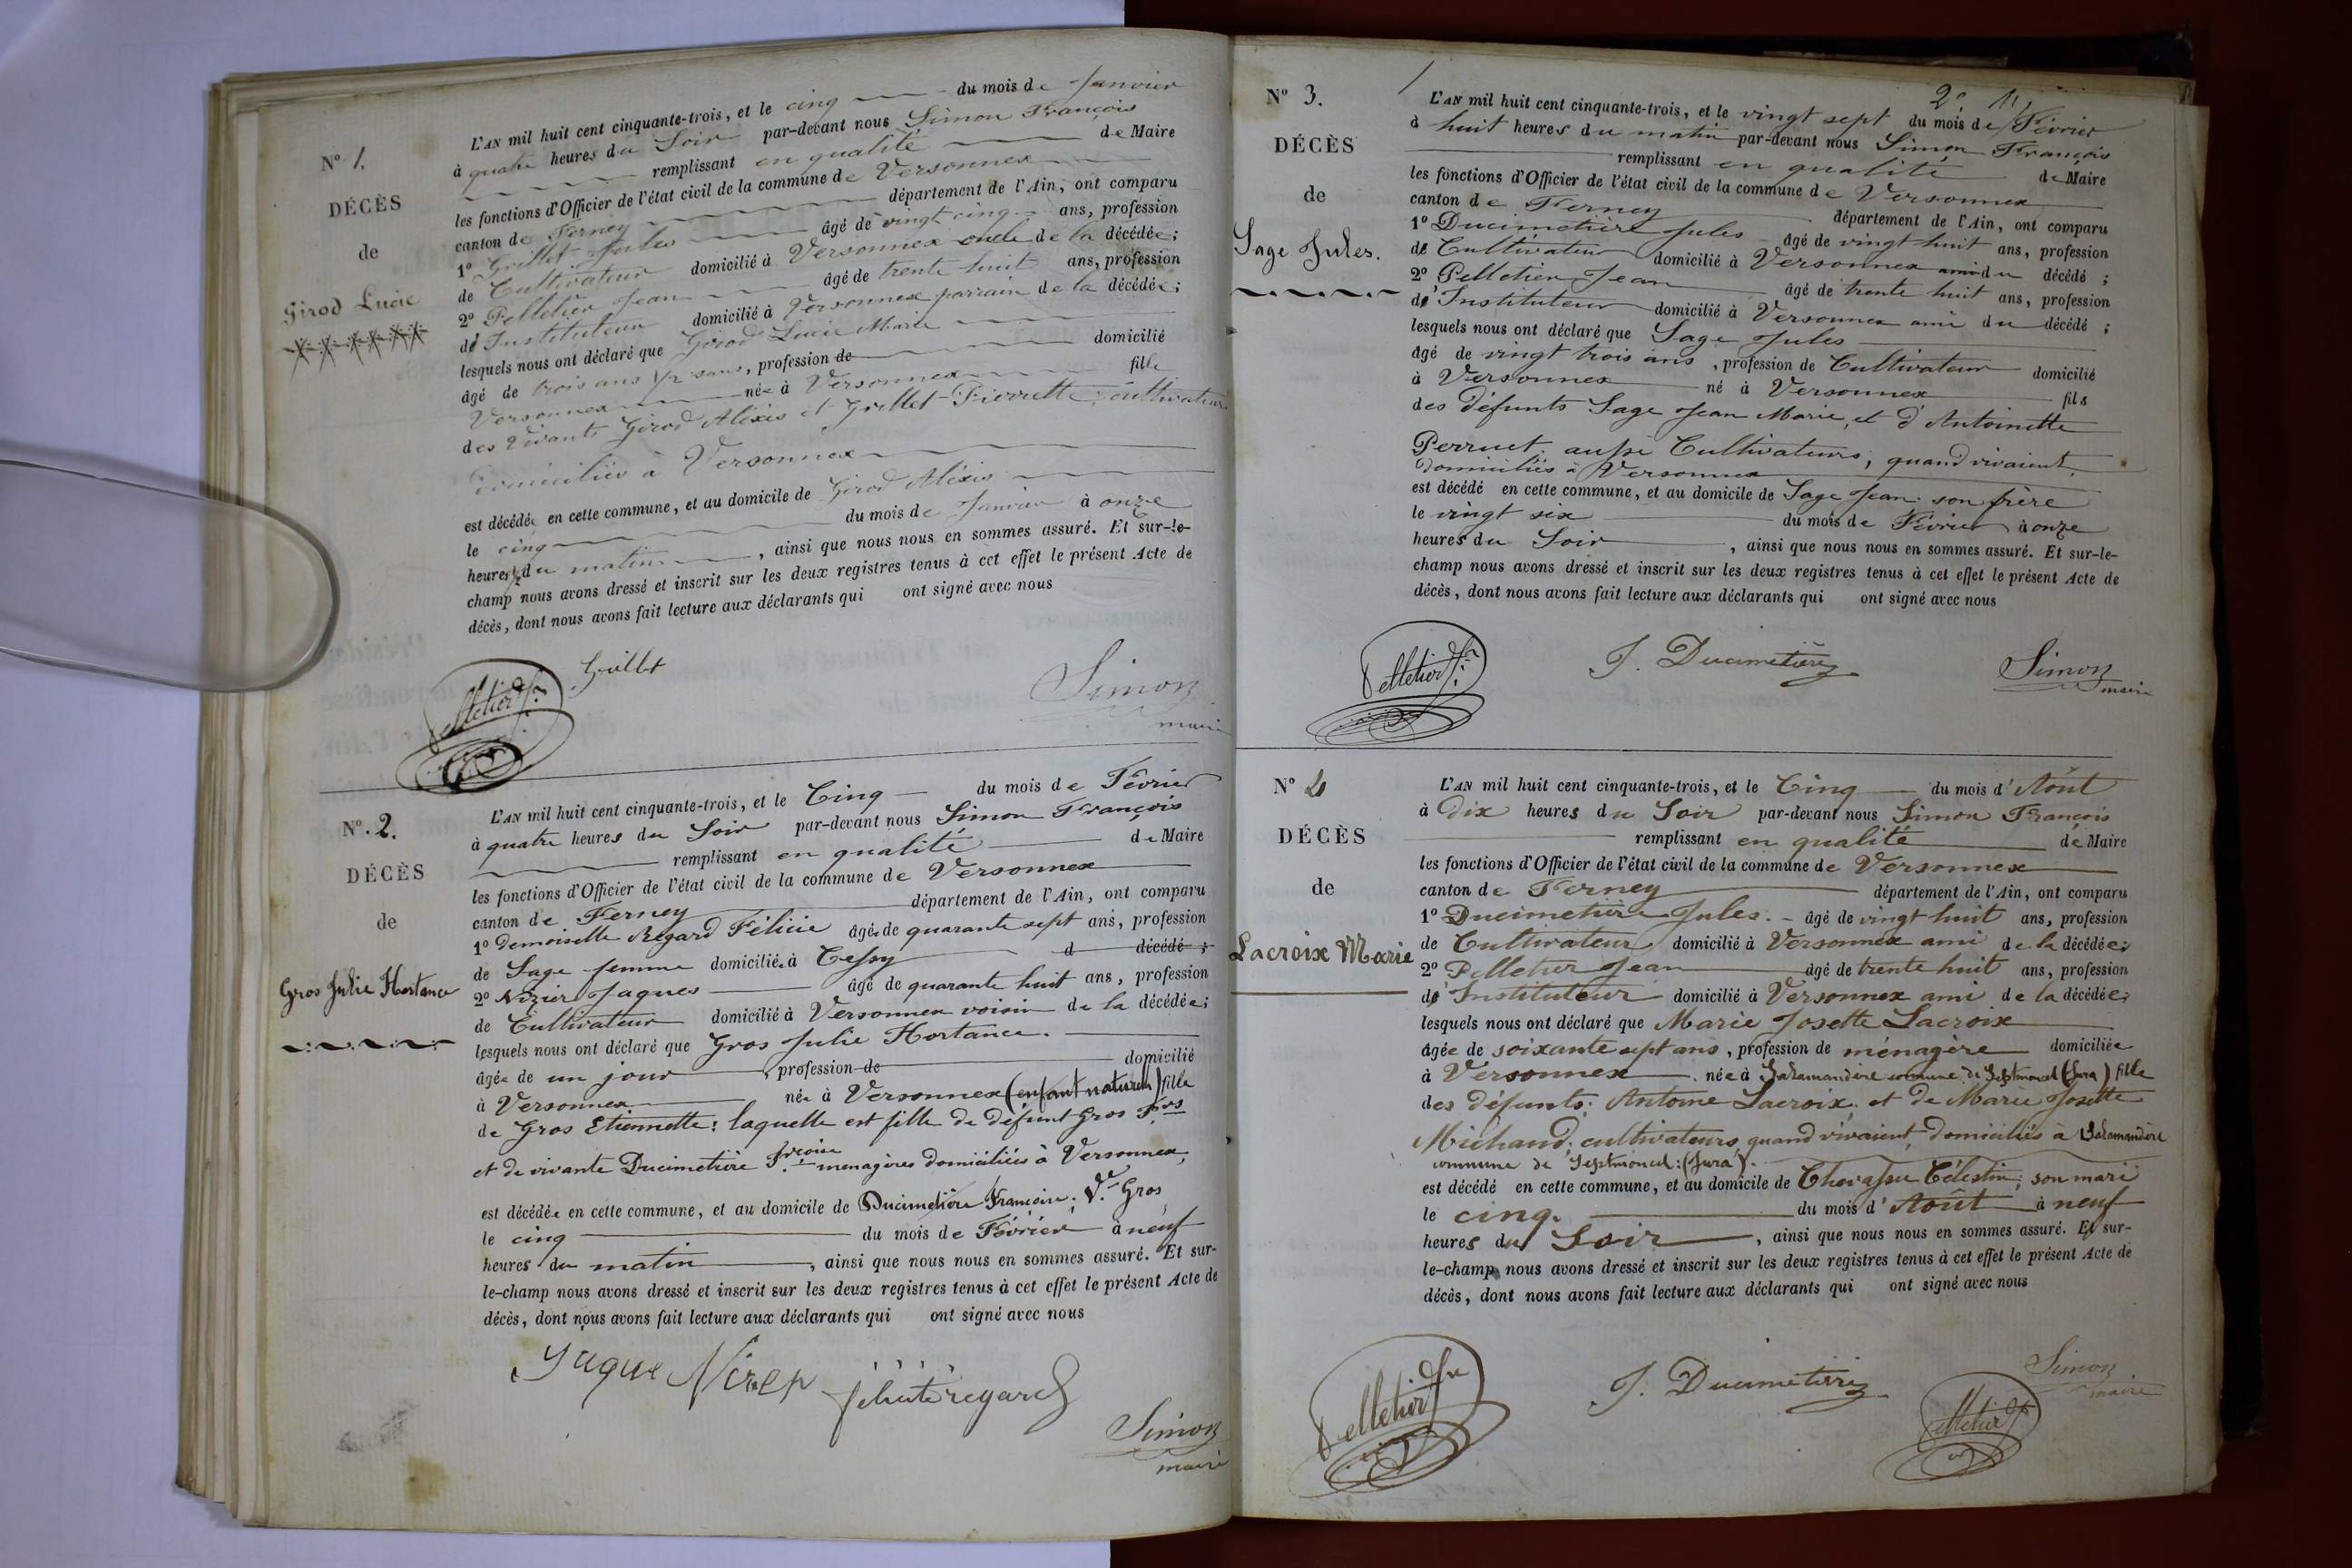 Nº 1.
DÉCÈS
de
Girod Lucie
L'AN mil huit cent cinquante-trois, et le cinq du mois de Janvier
à quatre heures du Soir par-devant nous Simon François
remplissant en qualité de Maire
les fonctions d'Officier de l'état civil de la commune de Versonnex
canton de Ferney département de l'Ain, ont comparu
1º Grillet Jules âgé de vingt cinq ans, profession
de Cultivateur domicilié à Versonnex oncle de la décédée;
2º Pelletier Jean âgé de trente huit ans, profession
de Instituteur domicilié à Versonnex parrain de la décédée;
lesquels nous ont déclaré que Girod Lucie Marie
âgé de trois ans 1/2 sans, profession de domicilié
Versonnex née à Versonnex fille
des vivants Girod Aléxis et Grillet Pierrette; cultivateurs
domiciliés à Versonnex
est décédée en cette commune, et au domicile de Girod Aléxis
le cinq du mois de Janvier à onze
heures du matin, ainsi que nous nous en sommes assuré. Et sur-le-
champ nous avons dressé et inscrit sur les deux registres tenus à cet effet le présent Acte de
décès, dont nous avons fait lecture aux déclarants qui ont signé avec nous
Grillet
Pelletier Jn
Simon
maire
Nº. 2.
DÉCÈS
de
Gros Julie Hortance
L'AN mil huit cent cinquante-trois, et le Cinq du mois de Février
à quatre heures du Soir par-devant nous Simon François
remplissant en qualité de Maire
les fonctions d'Officier de l'état civil de la commune de Versonnex
canton de Ferney département de l'Ain, ont comparu
1º demoiselle Regard Félicie âgée de quarante sept ans, profession
de Sage femme domiciliée à Cessy d décédé ;
2º Nizier Jaques âgé de quarante huit ans, profession
de Cultivateur domicilié à Versonnex voisin de la décédée;
lesquels nous ont déclaré que Gros Julie Hortance.
âgée de un jour, profession de domicilié
à Versonnex née à Versonnex (enfant naturelle) fille
de Gros Etiennette: laquelle est fille de défunt Gros Fçois
et de vivante Ducimetière Fçoise ménagères domiciliées à Versonnex,
est décédée en cette commune, et au domicile de Ducimetière Françoise, Ve Gros,
le cinq du mois de Février à neuf
heures du matin, ainsi que nous nous en sommes assuré. Et sur-
le-champ nous avons dressé et inscrit sur les deux registres tenus à cet effet le présent Acte de
décès, dont nous avons fait lecture aux déclarants qui ont signé avec nous
Jaque Nizier
félicité regard
Simon
maire
2e 11,
Nº 3.
DÉCÈS
de
Sage Jules.
L'AN mil huit cent cinquante-trois, et le vingt sept du mois de Février
à huit heures du matin par-devant nous Simon François
remplissant en qualité de Maire
les fonctions d'Officier de l'état civil de la commune de Versonnex
canton de Ferney département de l'Ain, ont comparu
1º Ducimetière Jules âgé de vingt huit ans, profession
de Cultivateur domicilié à Versonnex ami du décédé ;
2º Pelletier Jean âgé de trente huit ans, profession
de Instituteur domicilié à Versonnex ami du décédé ;
lesquels nous ont déclaré que Sage Jules
âgé de vingt trois ans, profession de Cultivateur domicilié
à Versonnex né à Versonnex fils
des défunts Sage Jean Marie, et d'Antoinette
Perruet, aussi Cultivateurs, quand vivaient,
domiciliés à Versonnex
est décédé en cette commune, et au domicile de Sage Jean son frère
le vingt six du mois de Février à onze
heures du Soir, ainsi que nous nous en sommes assuré. Et sur-le-
champ nous avons dressé et inscrit sur les deux registres tenus à cet effet le présent Acte de
décès, dont nous avons fait lecture aux déclarants qui ont signé avec nous
Pelletier Jn
J. Ducimetière
Simon
maire
Nº 4
DÉCÈS
de
Lacroix Marie
L'AN mil huit cent cinquante-trois, et le Cinq du mois d'Aôut
à Dix heures du Soir par-devant nous Simon François
remplissant en qualité de Maire
les fonctions d'Officier de l'état civil de la commune de Versonnex
canton de Ferney département de l'Ain, ont comparu
1º Ducimetière Jules. âgé de vingt huit ans, profession
de Cultivateur domicilié à Versonnex ami de la décédée;
2º Pelletier Jean âgé de trente huit ans, profession
de Instituteur domicilié à Versonnex ami de la décédée;
lesquels nous ont déclaré que Marie Josette Lacroix
âgée de soixante sept ans, profession de ménagère domiciliée
à Versonnex née à Salamandère commune de Septmoncel (Jura) fille
des défunts: Antoine Lacroix, et de Marie Josette
Michaud, cultivateurs, quand vivaient, domiciliés à Salamandère
commune de Septmoncel: (Jura).
est décédé en cette commune, et au domicile de Chevassu Célestin, son mari
le cinq. du mois d'Août à neuf
heures du Soir, ainsi que nous nous en sommes assuré. Et sur-
le-champ nous avons dressé et inscrit sur les deux registres tenus à cet effet le présent Acte de
décès, dont nous avons fait lecture aux déclarants qui ont signé avec nous
Pelletier Jn
J. Ducimetière
Simon
maire
Pelletier Jn